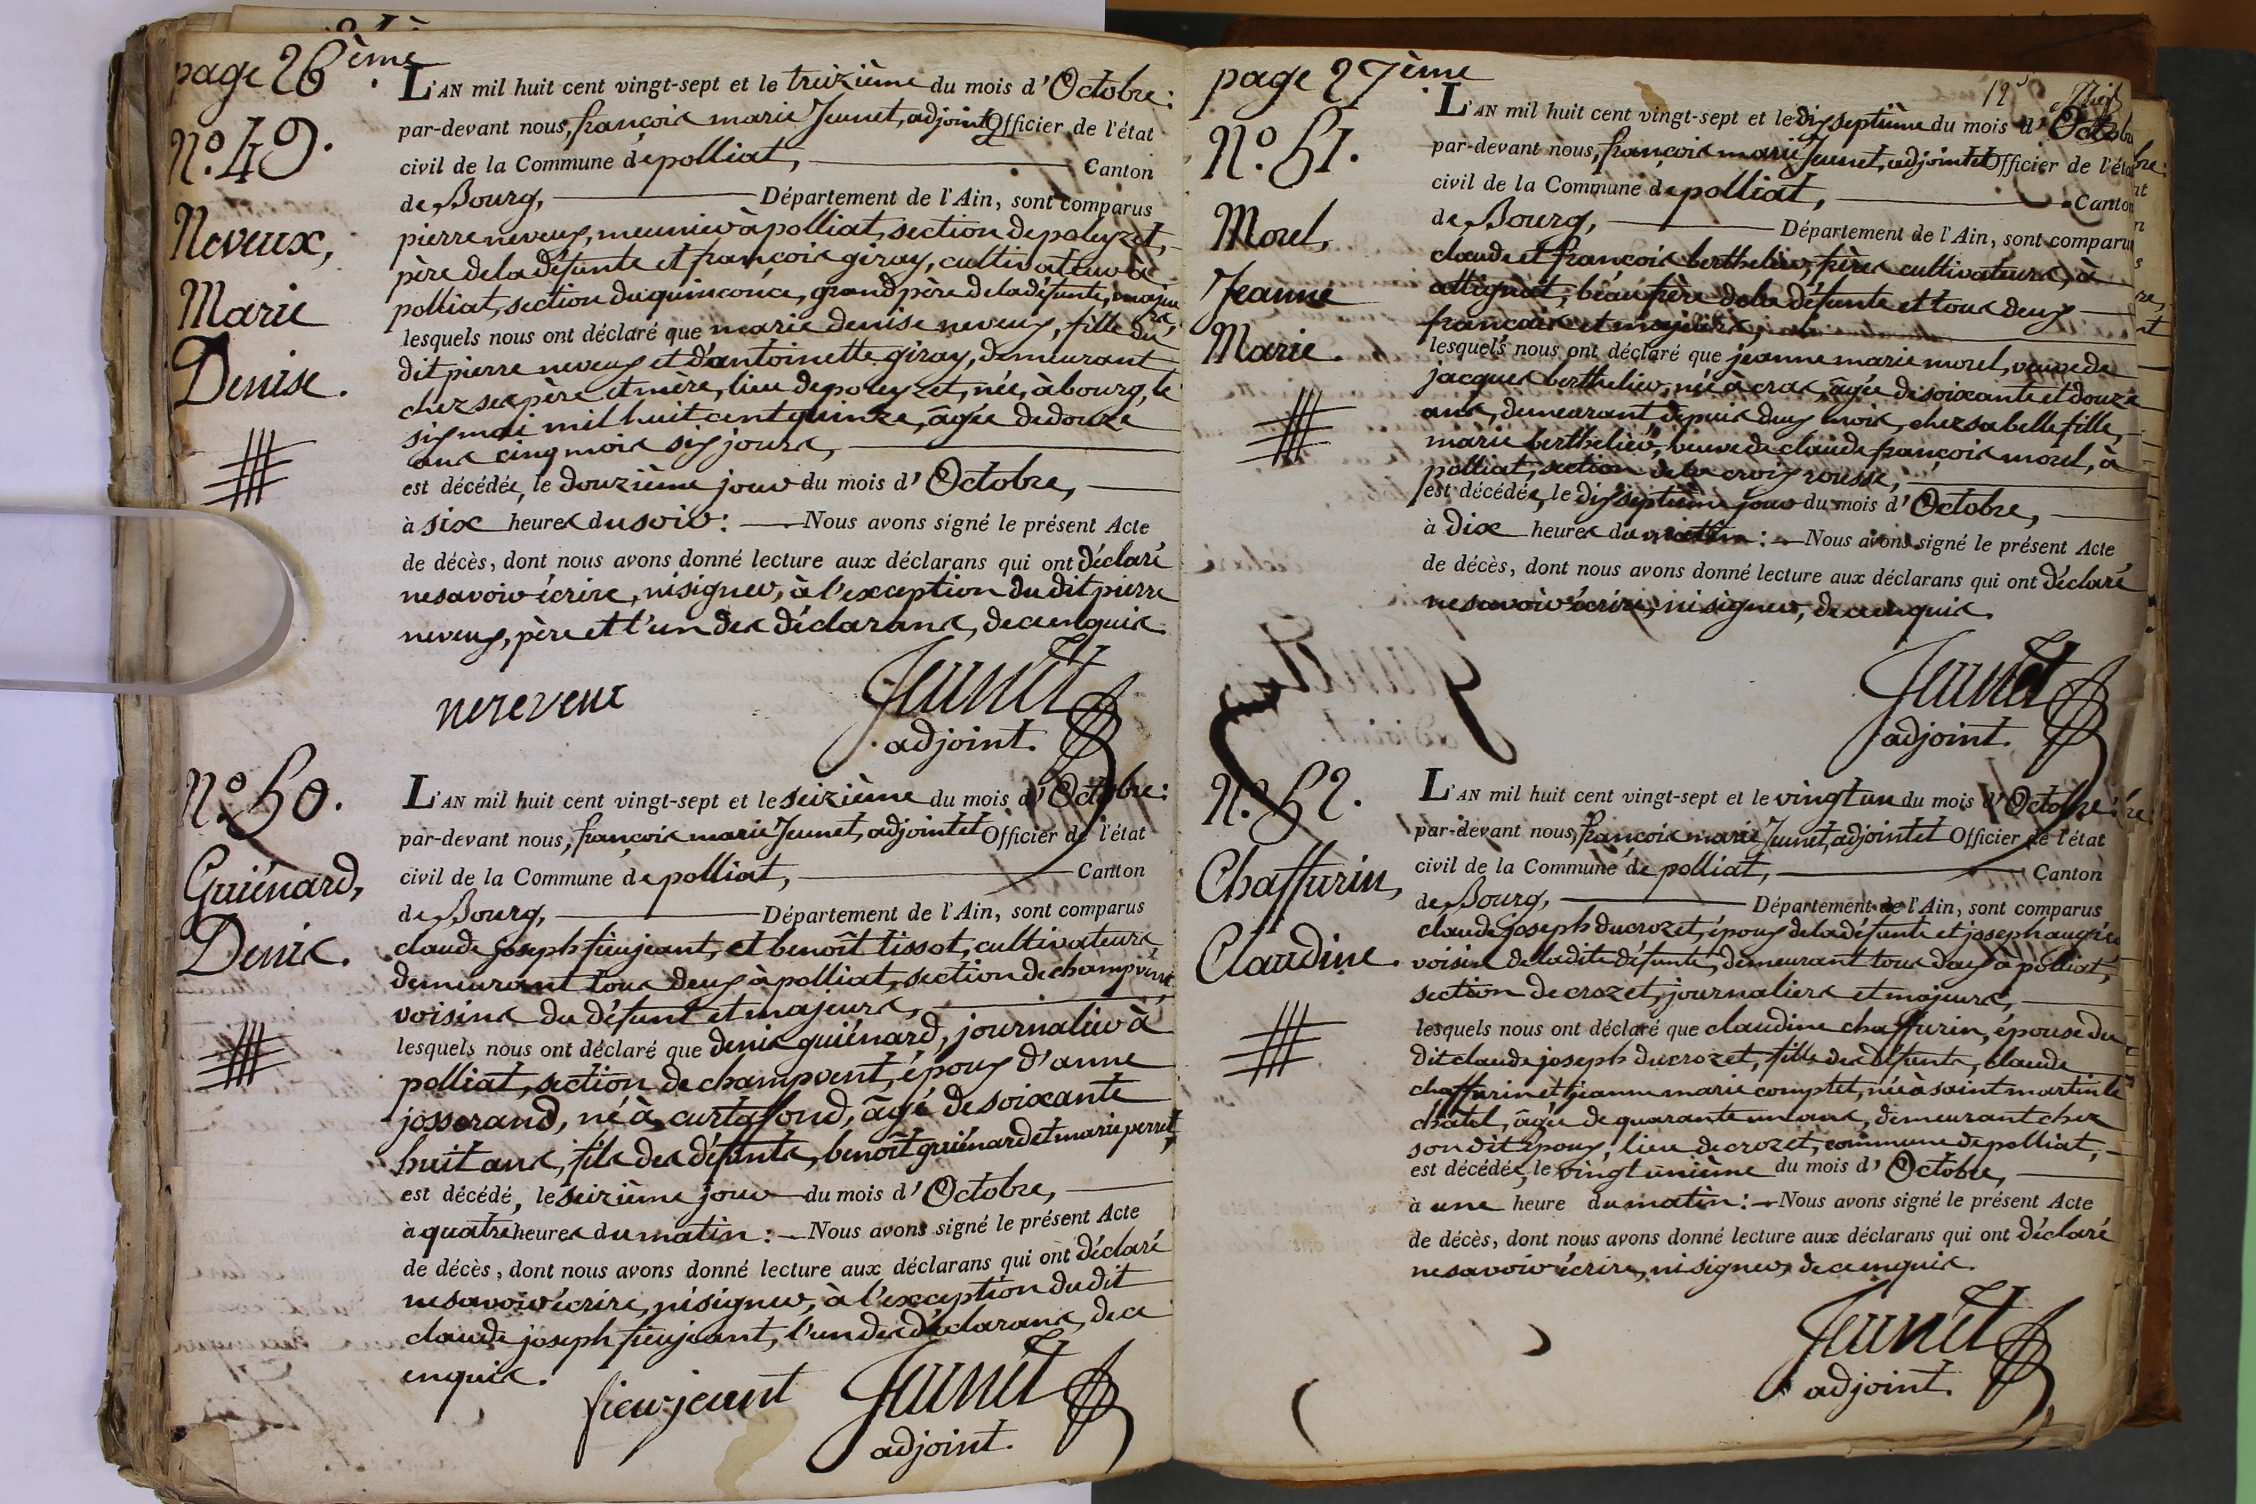 page 26ème
N.º 49.
Neveux,
Marie
Denise.
L'AN mil huit cent vingt-sept et le treizième du mois d'Octobre:
par-devant nous, françois marie Jeunet, adjoint et Officier de l'état
civil de la Commune de polliat, Canton
de Bourg, Département de l'Ain, sont comparus
pierre neveux, meunier à polliat, section de poleyzet,
père de la défunte et françois giray, cultivateur à
polliat, section du quinconce, grand père de la défunte, majeurs,
lesquels nous ont déclaré que marie denise neveux, fille du
dit pierre neveux et d'antoinette giray, demeurant
chez ses père et mère, lieu de poleyzet, née, à bourg, le
six mai mil huit cent quinze, âgée de douze
ans cinq mois six jours,
est décédée, le douzième jour du mois d'Octobre,
à six heures du soir: Nous avons signé le présent Acte
de décès, dont nous avons donné lecture aux déclarans qui ont déclaré
ne savoir écrire, ni signer, à l'exception du dit pierre
neveux, père et l'un des déclarans, de ce enquis.
Jeunet
adjoint.
N.º 50.
Guiénard,
Denis.
L'AN mil huit cent vingt-sept et le seizième du mois d'Octobre:
par-devant nous, françois marie Jeunet, adjoint et Officier de l'état
civil de la Commune de polliat, Canton
de Bourg, Département de l'Ain, sont comparus
claude joseph fieujeant, et benoît tissot, cultivateurs
demeurant tous deux à polliat, section de champvent,
voisins du défunt et majeurs,
lesquels nous ont déclaré que denis guiénard, journalier à
polliat, section de champvent, époux d'anne
josserand, né à curtaffond, âgé de soixante
huit ans, fils des défunts, benoît guiénard et marie perret,
est décédé, le seizième jour du mois d'Octobre,
à quatre heures du matin: Nous avons signé le présent Acte
de décès, dont nous avons donné lecture aux déclarans qui ont déclaré
ne savoir écrire, ni signer, à l'exception du dit
claude joseph fieujeant, l'un des déclarans, de ce
enquis.
fieujeant Jeunet
adjoint.
page 27ème
N.º 51.
Morel,
Jeanne
Marie.
L'AN mil huit cent vingt-sept et le dix septième du mois d'Octobre
par-devant nous, françois marie Jeunet, adjoint et Officier de l'état
civil de la Commune de polliat, Canton
de Bourg, Département de l'Ain, sont comparus
claude et françois berthelier, frères cultivateurs, à
attignat, beau frère de la défunte et tous deux
français et majeurs,
lesquels nous ont déclaré que jeanne marie morel, veuve de
jacques berthelier, née à cras, âgée de soixante et douze
ans, demeurant depuis deux mois, chez sa belle fille,
marie berthelier, veuve de claude françois morel, à
polliat, section de la croix rousse,
est décédée, le dix septième jour du mois d'Octobre,
à dix heures du matin: Nous avons signé le présent Acte
de décès, dont nous avons donné lecture aux déclarans qui ont déclaré
ne savoir écrire, ni signer, de ce enquis.
Jeunet
adjoint.
N.º 52.
Chaffurin,
Claudine.
L'AN mil huit cent vingt-sept et le vingt un du mois d'Octobre:
par-devant nous, françois marie Jeunet, adjoint et Officier de l'état
civil de la Commune de polliat, Canton
de Bourg, Département de l'Ain, sont comparus
claude joseph ducrozet, époux de la défunte et joseph
voisin de ladite défunte, demeurant tous deux à polliat,
section de crozet, journaliers et majeurs,
lesquels nous ont déclaré que claudine chaffurin, épouse du
dit claude joseph ducrozet, fille des défunts, claude
chaffurin et jeanne marie comptet, née à saint martin le
châtel, âgée de quarante un ans, demeurant chez
son dit époux, lieu de crozet, commune de polliat,
est décédée, le vingt unième du mois d'Octobre,
à une heure du matin: Nous avons signé le présent Acte
de décès, dont nous avons donné lecture aux déclarans qui ont déclaré
ne savoir écrire, ni signer, de ce enquis.
Jeunet
adjoint.